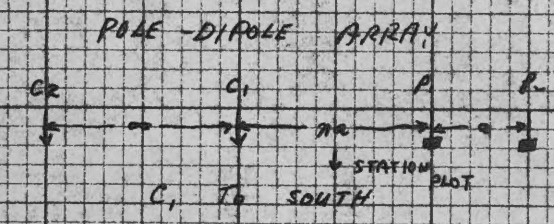 POLE-DIPOLE ARRAY
C2 C1 P P2
∞ na a
STATION PLOT
C, TO SOUTH